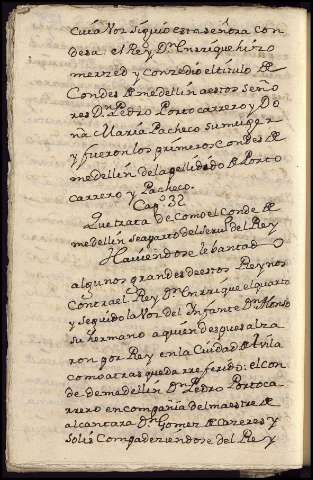 cuia Voz siguio esta señora con
desa. el Rey Dn. Enrrique hizo
merzed y conzedio el titulo de
Condes de medellin a estos seño
res Dn. Pedro Portocarrero y Do
ña Maria Pacheco su muger
y fueron los primeros Condes de
medellin del apellido de Porto
carrero y Pacheco.
Capo. 32
Que trata de Como el Conde de
medellin se aparto del Serui. del Rey
Haviendose lebantado
algunos grandes de estos Reynos
Contra el Rey Dn. Enrrique el quarto
y seguido la Voz del Infante Dn. Alonso
su hermano a quien despues alza
ron por Rey en la Ciudad de Avila
como atras queda rreferido: el con
de de medellin Dn. Pedro Portoca
rrero en compañia del maestre de
alcantara Dn. Gomez de Cazeres y
Solis Compadeziendose del Rey